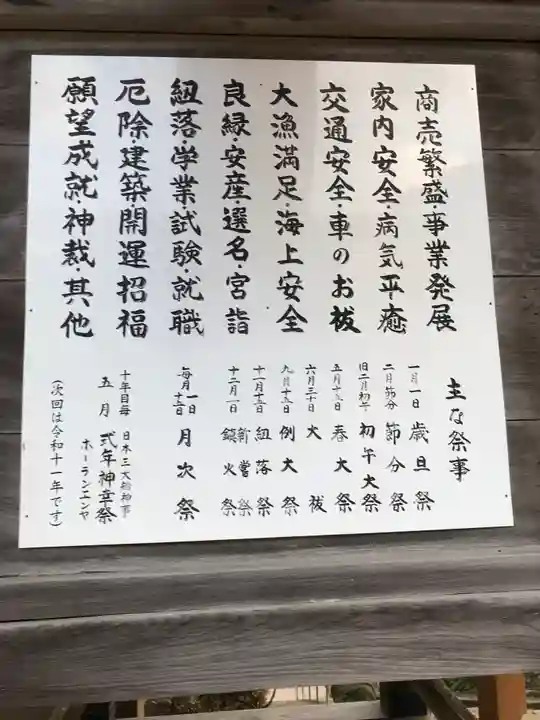 商売繁盛・事業発展
家内安全・病気平癒
交通安全・車のお祓
大漁満足・海上安全
良縁・安産選名・宮詣
紐落・学業・試験・就職
厄除・建築・開運招福
願望成就・神裁・其他
主な祭事
一月一日 歳旦祭
二月節分 節分祭
旧二月初午 初午大祭
五月十五日 春大祭
六月三十日 大祓
九月十五日 例大祭
十一月十五日 紐落祭
新嘗祭
十二月一日 鎮火祭
毎月一日 十五日 月次祭
十年目毎 日本三大船神事
五月 弐年神幸祭
ホーランエンヤ
(次回は令和十一年です)